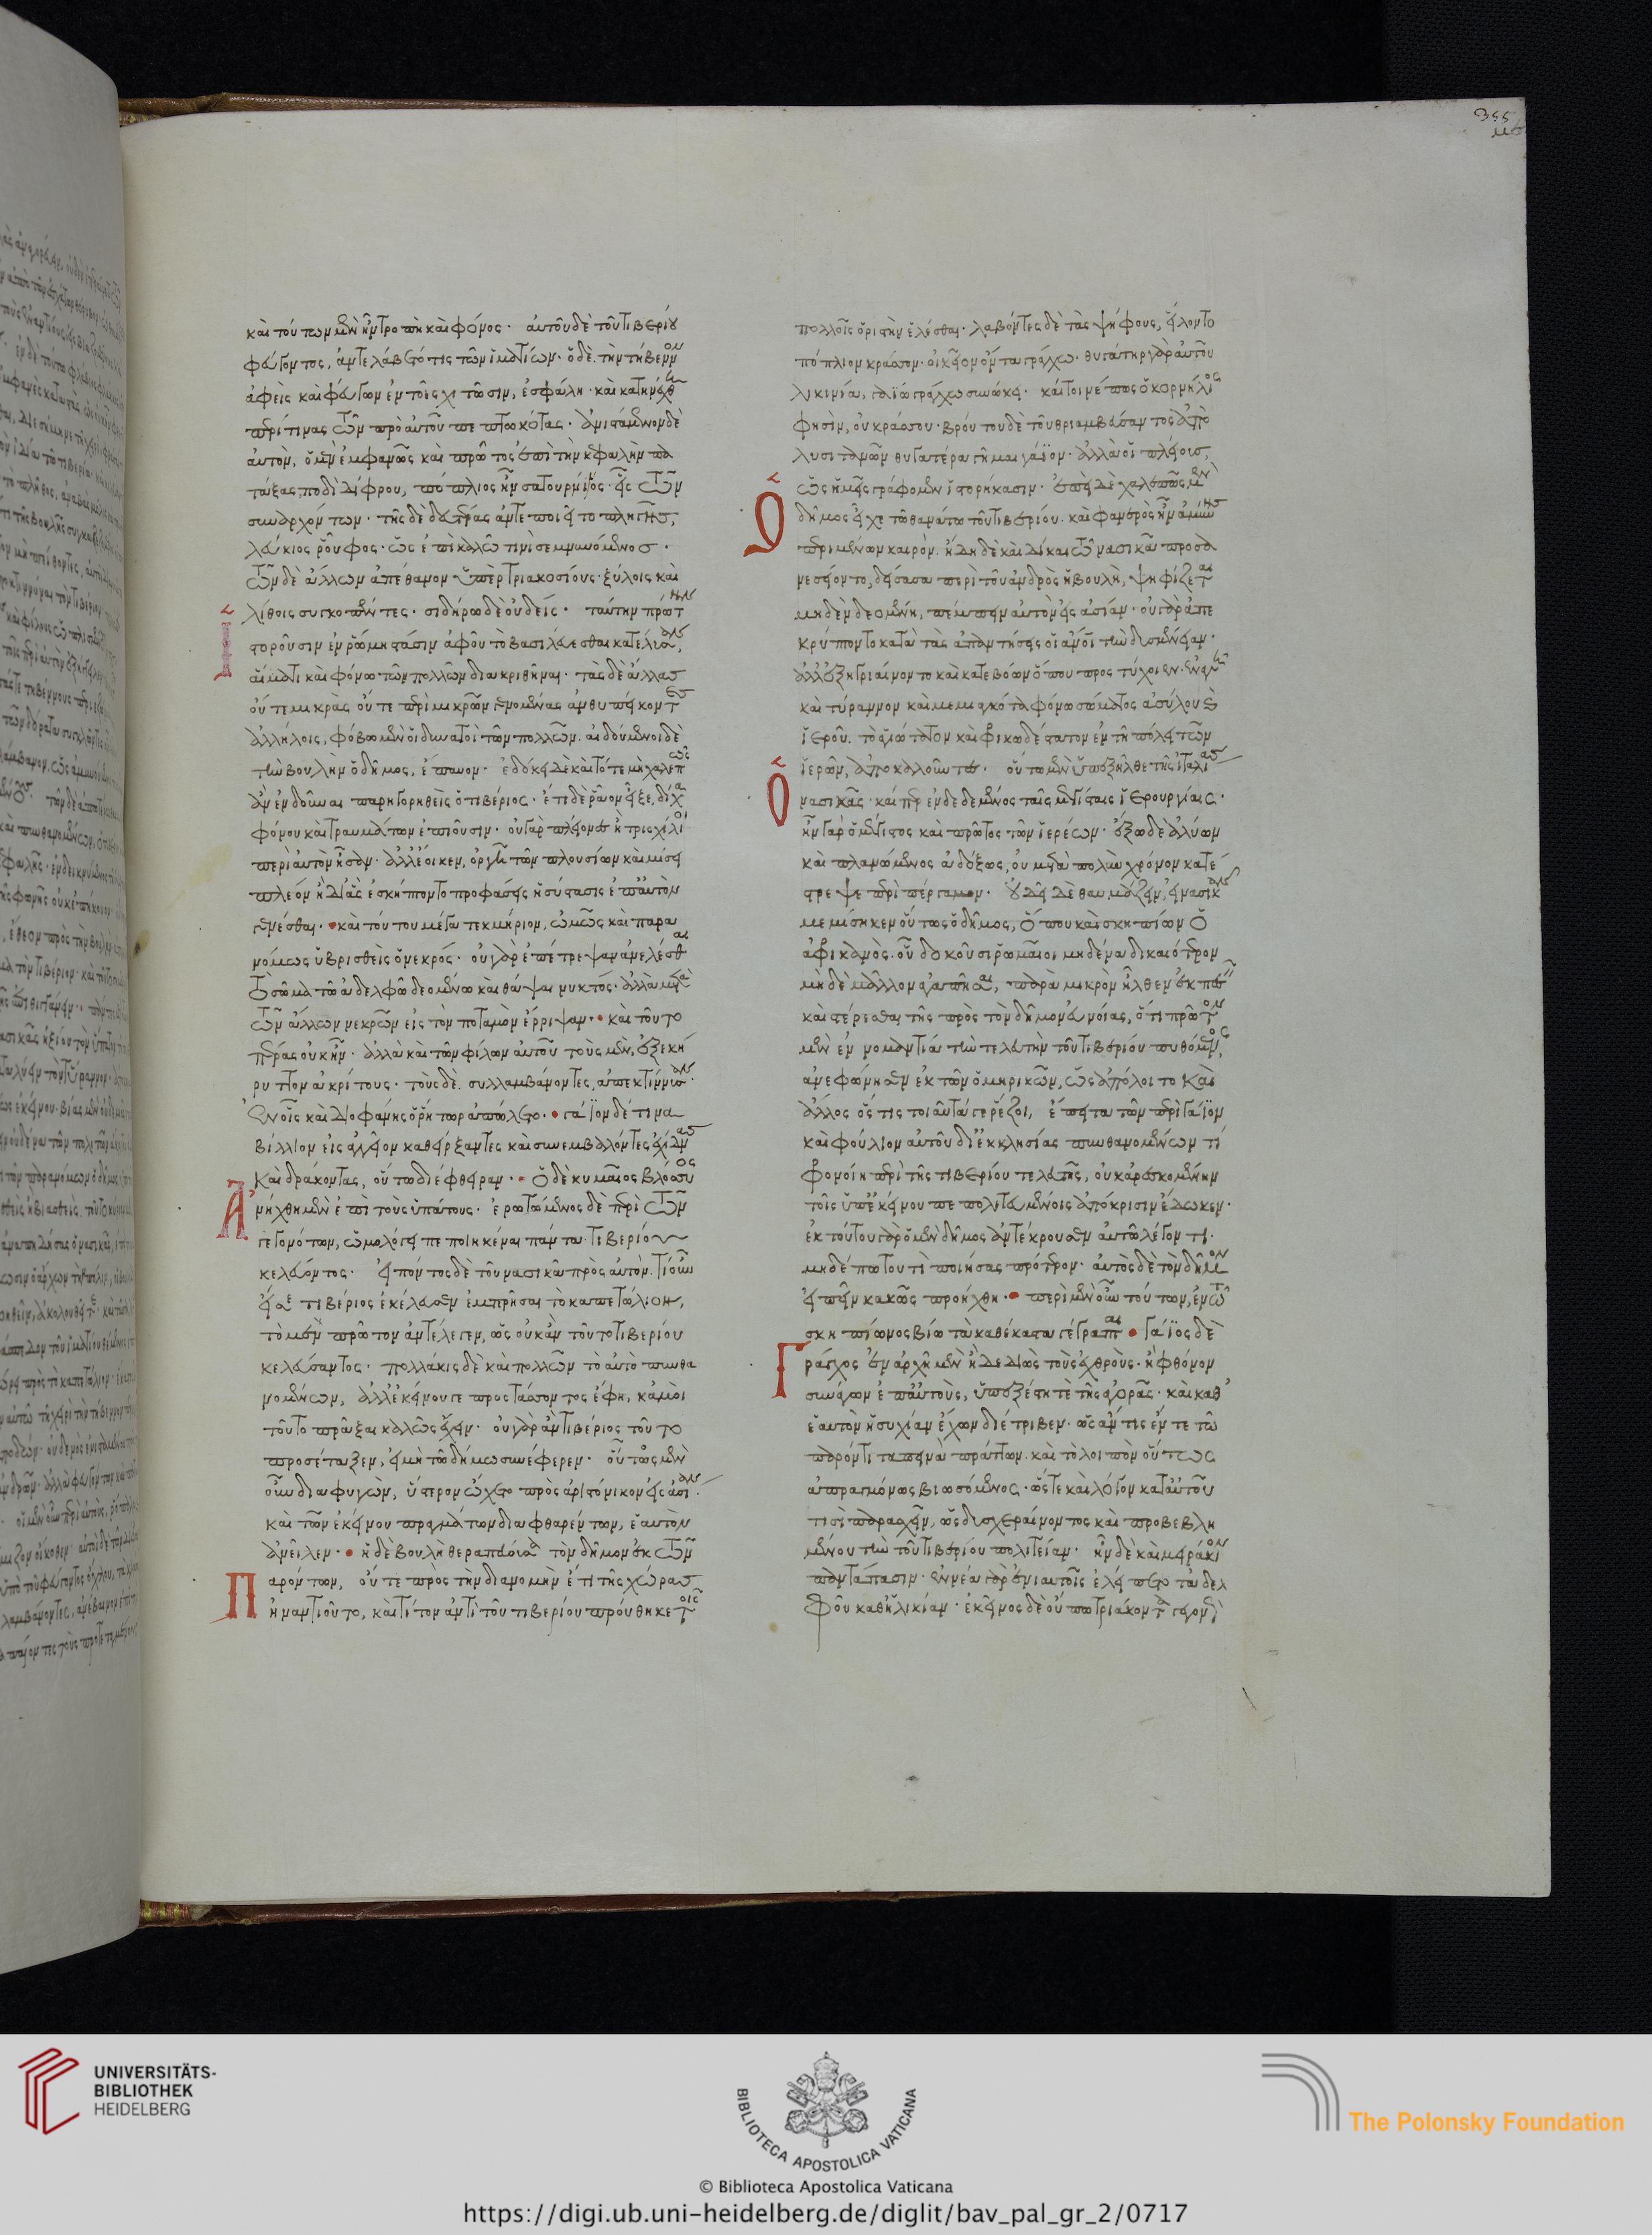 355
καὶ τούτων μὲν ἦν τροπὴ καὶ φόνος. αὐτοῦ δὲ τοῦ τιβερίου
φεύγοντος, ἀντελάβετό τις τῶν ἱματίων. ὁ δὲ τὴν τήβεννον
ἀφεὶς καὶ φεύγων ἐν τοῖς χιτῶσιν, ἐσφάλη. καὶ κατηνέχθη
περί τινας τῶν πρὸ αὐτοῦ πεπτωκότας. ἀνιστάμενον δὲ
αὐτὸν, ὁ μὲν ἐμφανῶς καὶ πρῶτος ἐπὶ τὴν κεφαλὴν πα
τάξας ποδὶ δίφρου, πόπλιος ἦν σατουρνήϊος εἷς τῶν
συναρχόντων. τῆς δὲ δευτέρας ἀντεποιεῖτο πληγῆς,
λεύκιος ῥοῦφος. ὡς ἐπὶ καλῶ τινὶ σεμνυνόμενος.
τῶν δὲ ἄλλων ἀπέθανον ὑπὲρ τριακοσίους ξύλοις καὶ
λίθοις συγκοπέντες. σιδήρω δὲ οὐδείς. ταύτην πρώτην
ἱστοροῦσιν ἐν ῥώμη στάσιν ἀφοῦ τὸ βασιλεύεσθαι κατέλυσαν,
αἵματι καὶ φόνω τῶν πολλῶν διακριθῆναι. τὰς δὲ ἄλλας
οὔτε μικρὰς οὔτε περὶ μικρῶν γενομένας ἀνθυπείκοντες
ἀλλήλοις, φόβω μὲν οἱ δυνατοὶ τῶν πολλῶν. αἰδούμενοι δὲ
τὴν βουλὴν ὁ δῆμος, ἔπαυον. ἐδόκει δὲ καὶ τότε μὴ χαλεπῶς
ἂν ἐνδοῦναι παρηγορηθεὶς ὁ τιβέριος. ἔτι δὲ ῥᾶον εἶξε, δίχα
φόνου καὶ τραυμάτων ἐπιοῦσιν. οὐ γὰρ πλέονες ἢ τρισχίλιοι
περὶ αὐτὸν ἦσαν. ἀλλ' ἔοικεν, ὀργῆ τῶν πλουσίων καὶ μίσει
πλεόν ἢ δι' ἃς ἐσκήπτοντο προφάσεις ἡ σύστασις ἐπ' αὐτὸν
γενέσθαι. καὶ τούτου μέγα τεκμήριον, ὠμῶς καὶ παρα
νόμως ὑβρισθεὶς ὁ νεκρός. οὐ γὰρ ἐπέτρεψαν ἀνελέσθαι
τὸ σῶμα τῶ ἀδελφῶ δεομένω καὶ θάψαι νυκτός. ἀλλὰ μετὰ
τῶν ἄλλων νεκρῶν εἰς τὸν ποταμὸν ἔρριψαν. καὶ τοῦτο
πέρας οὐκ ἦν. ἀλλὰ καὶ τῶν φίλων αὐτοῦ τοὺς μὲν, ἐξεκή
ρυττον ἀκρίτους. τοὺς δὲ συλλαμβάνοντες, ἀπεκτίννυσαν.
ἐν οἷς καὶ διοφάνης ὁ ῥήτωρ ἀπώλετο. γάϊον δέ τινα
βίλλιον εἰς ἀγγεῖον καθείρξαντες καὶ συνεμβαλόντες ἐχίδνας
καὶ δράκοντας, οὕτω διέφθειραν. ὁ δὲ κυμαῖος βλόσσιος
ἀνήχθη μὲν ἐπὶ τοὺς ὑπάτους. ἐρωτώμενος δὲ περὶ τῶν
γεγονότων, ὡμολόγει πεποιηκέναι πάντα τιβερίου
κελεύοντος. εἰπόντος δὲ τοῦ νασικᾶ πρὸς αὐτὸν. τί οὖν
εἴ σε τιβέριος ἐκέλευσεν ἐμπρῆσαι τὸ καπετώλιον,
τὸ μὲν πρῶτον ἀντέλεγεν, ὡς οὐκ ἂν τοῦτο τιβερίου
κελεύσαντος. πολλάκις δὲ καὶ πολλῶν τὸ αὐτὸ πυνθα
νομένων, ἀλλ' ἐκείνου γε προστάσσοντος ἔφη, κἀμοὶ
τοῦτο πρᾶξαι καλῶς εἶχεν. οὐ γὰρ ἂν τιβέριος τοῦτο
προσέταξεν, εἰ μὴ τῶ δήμω συνέφερεν. οὗτος μὲν
οὖν διαφυγὼν, ὕστερον ὤχετο πρὸς ἀριστόνικον εἰς ἀσίαν.
καὶ τῶν ἐκείνου πραγμάτων διαφθαρέντων, ἑαυτὸν
ἀνεῖλεν. ἡ δὲ βουλὴ θεραπεύουσα τὸν δῆμον ἐκ τῶν
παρόντων, οὔτε πρὸς τὴν διανομὴν ἔτι τῆς χώρας
ἠναντιοῦτο, καί τί τον ἀντὶ τοῦ τιβερίου προύθηκε τοῖς
πολλοῖς ὁριστὴν ἑλέσθαι. λαβόντες δὲ τὰς ψήφους, εἵλοντο
πόπλιον κράσσον. οἰκεῖον ὄντα γράχω. θυγάτηρ γὰρ αὐτοῦ
λικινία, γαΐω γράχω συνώκει. καίτοι νέπως ὁ κορνήλιος
φησὶν, οὐ κράσσου. βρούτου δὲ τοῦ θριαμβεύσαντος ἀπὸ
λυσιτανῶν θυγατέρα γῆμαι γάϊον. ἀλλὰ οἱ πλείους,
ὡς ἡμεῖς γράφομεν ἱστορήκασιν. ἐπεὶ δὲ χαλεπῶς μὲν
ὁ δῆμος εἶχε τῶ θανάτω τοῦ τιβερίου. καὶ φανερὸς ἦν ἀμύνης
περιμένων καιρόν. ἤδη δὲ καὶ δίκαι τῶ νασικᾶ προσα
νεσείοντο, δείσασα περὶ τοῦ ἀνδρὸς ἡ βουλὴ, ψηφίζεται
μηδὲν δεομένη, πέμπειν αὐτὸν εἰς ἀσίαν. οὐ γὰρ ἀπε
κρύπτοντο κατὰ τὰς ἀπαντήσεις οἱ ἄνθρωποι τὴν δυσμένειαν.
ἀλλ' ἐξηγριαίνοντο καὶ κατεβόων ὅπου προστύχοιεν. ἐναγῆ
καὶ τύραννον καὶ μεμιαγκότα φόνω σώματος ἀσύλου καὶ
ἱεροῦ. τὸ ἁγιώτατον καὶ φρικωδέστατον ἐν τῆ πόλει τῶν
ἱερῶν, ἀποκαλοῦντες. οὕτω μὲν ὑπεξῆλθε τῆς ἰταλίας
ὁ νασικᾶς. καίπερ ἐνδεδεμένος ταῖς μεγίσταις ἱερουργίαις.
ἦν γὰρ ὁ μέγιστος καὶ πρῶτος τῶν ἱερέων. ἔξω δὲ ἀλύων
καὶ πλανώμενος ἀδόξως, οὐ μετὰ πολὺν χρόνον κατέ
στρεψε περὶ πέργαμον. οὐ δεῖ δὲ θαυμάζειν, εἰ νασικᾶν
μεμίσηκεν οὕτως ὁ δῆμος, ὅπου καὶ σκηπίων ὁ
ἀφρικανὸς. οὗ δοκοῦσι ῥωμαῖοι μηδένα δικαιότερον
μηδὲ μᾶλλον ἀγαπῆσαι, παρὰ μικρὸν ἦλθεν ἐκπεσεῖν
καὶ στέρεσθαι τῆς πρὸς τὸν δῆμον εὐνοίας, ὅτι πρῶτον
μὲν ἐν νομαντία τὴν τελευτὴν τοῦ τιβερίου πυθόμενος,
ἀνεφώνησεν ἐκ τῶν ὁμηρικῶν, ὡς ἀπόλοιτο καὶ
ἄλλος ὅς τις τοιαῦτά γε ῥέζοι, ἔπειτα τῶν περὶ γάϊον
καὶ φούλιον αὐτοῦ δι' ἐκκλησίας πυνθανομένων τί
φρονοίη περὶ τῆς τιβερίου τελευτῆς, οὐκ ἀρεσκομένην
τοῖς ὑπ' ἐκείνου πεπολιτευμένοις ἀπόκρισιν ἔδωκεν.
ἐκ τούτου γὰρ ὁ μὲν δῆμος ἀντέκρουσεν αὐτῶ λέγοντι.
μηδέπω τοῦτι ποιήσας πρότερον. αὐτὸς δὲ τὸν δῆμον
εἰπεῖν κακῶς προήχθη. περὶ μὲν οὖν τούτων, ἐν τῶ
σκηπίωνος βίω τὰ καθέκαστα γέγραπται γάϊος δὲ
γράγχος ἐν ἀρχῆ μὲν ἢ δεδιὼς τοὺς ἐχθρούς. ἢ φθόνον
συνάγων ἐπ' αὐτοὺς, ὑπεξέστη τὲ τῆς ἀγορᾶς. καὶ καθ'
ἑαυτὸν ἡσυχίαν ἔχων διέτριβεν. ὡς ἄν τις ἔν τε τῶ
παρόντι ταπεινὰ πράττων. καὶ τὸ λοιπὸν οὕτως
ἀπραγμόνως βιωσόμενος. ὥστε καὶ λόγον κατ' αὐτοῦ
τισὶ παρασχεῖν, ὡς δυσχεραίνοντος καὶ προβεβλη
μένου τὴν τοῦ τιβερίου πολιτείαν. ἦν δὲ καὶ μειράκιον
παντάπασιν. ἐννέα γὰρ ἐνιαυτοῖς ἐλείπετο τἀδελ
φοῦ καθ' ἡλικίαν. ἐκεῖνος δὲ οὔπω τριάκοντα γεγονὼς
UNIVERSITÄTS-
BIBLIOTHEK
HEIDELBERG
BIBLIOTECA APOSTOLICA VATICANA
The Polonsky Foundation
© Biblioteca Apostolica Vaticana
https://digi.ub.uni-heidelberg.de/diglit/bav_pal_gr_2/0717